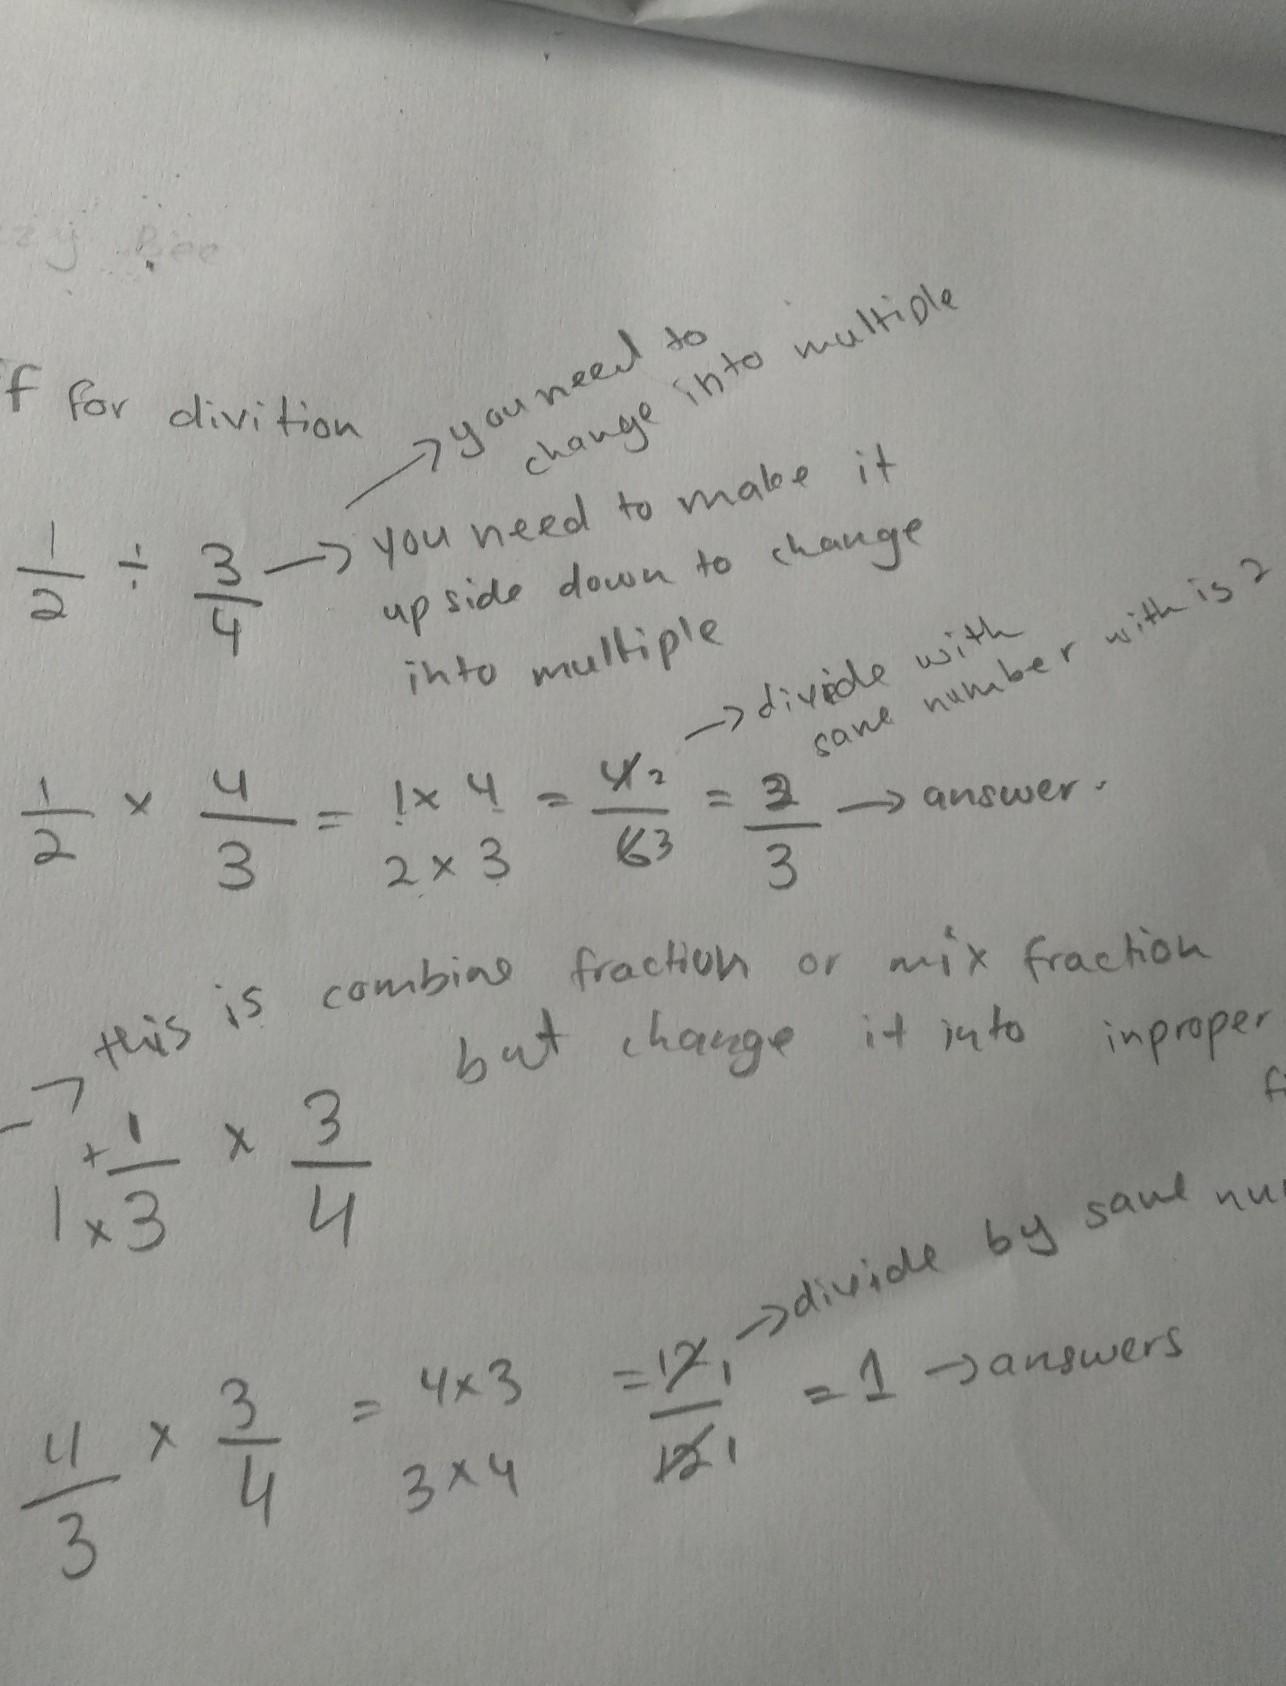 if for divition
you need to
change into multiple
1/2 ÷ 3/4 → you need to make it
upside down to change
into multiple
→ divide with
same number with is 2
1/2 × 4/3 = 1×4 / 2×3 = 4 2 / 6 3 = 2/3 → answer.
→ this is combine fraction or mix fraction
but change it into inproper
1 × + 1/3 × 3/4
→ divide by same
4/3 × 3/4 = 4×3 / 3×4 = 12 1 / 12 1 = 1 → answers